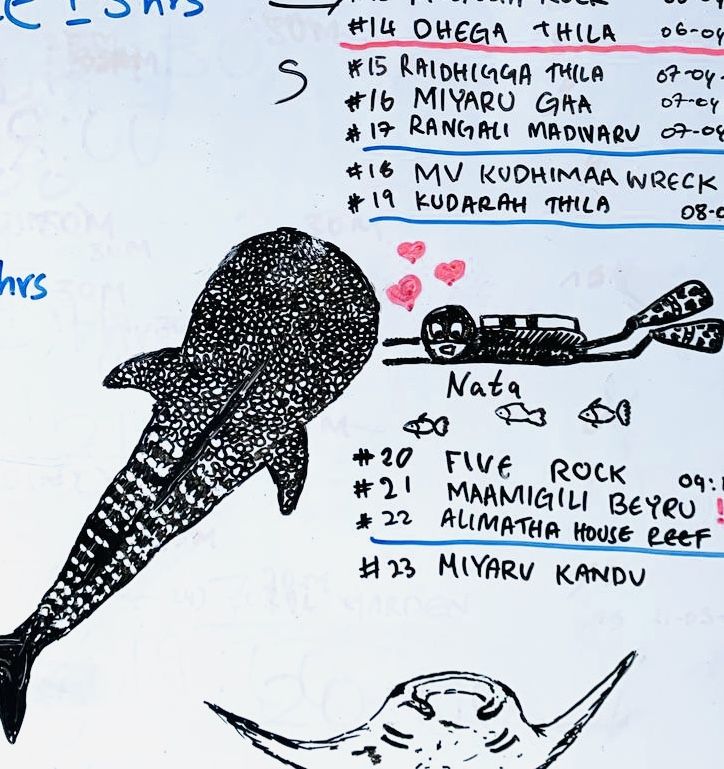 hrs
ROCK
#14 DHEGA THILA 06-04
S
#15 RAIDHIGGA THILA 07-04-
#16 MIYARU GHA 07-04
#17 RANGALI MADIVARU 07-04
#18 MV KUDHIMAA WRECK
#19 KUDARAH THILA 08-0
hrs
Nata
#20 FIVE ROCK 09:
#21 MAAMIGILI BEYRU !
#22 ALIMATHA HOUSE REEF
#23 MIYARU KANDU